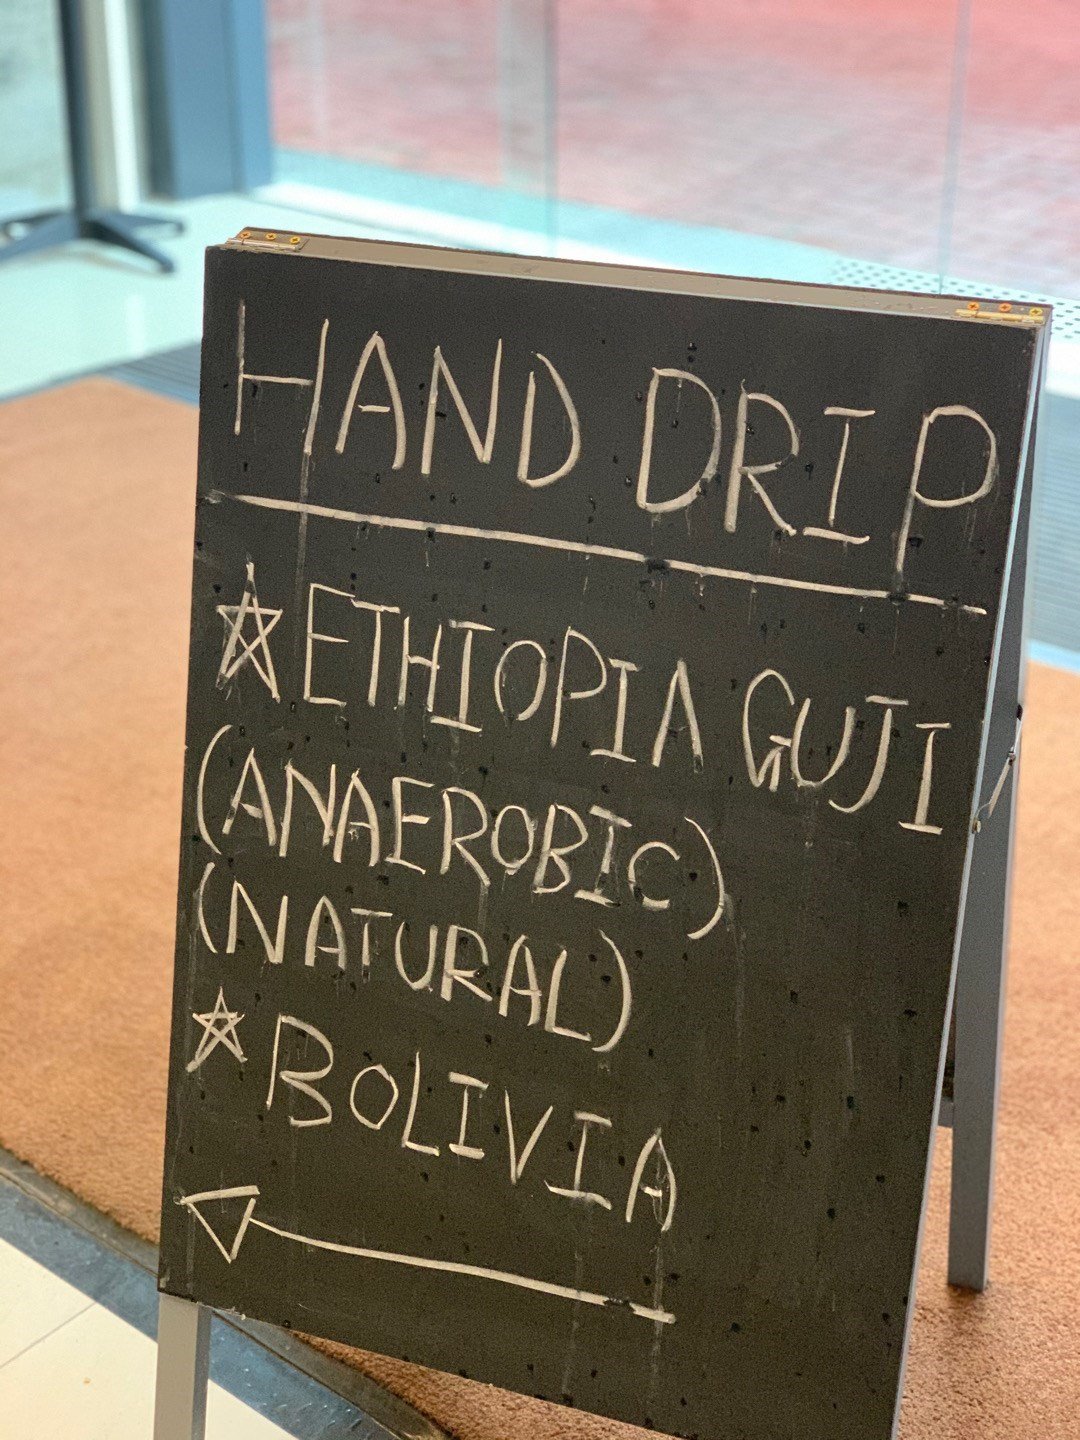 HAND DRIP
☆ETHIOPIA GUJI
(ANAEROBIC)
(NATURAL)
☆BOLIVIA